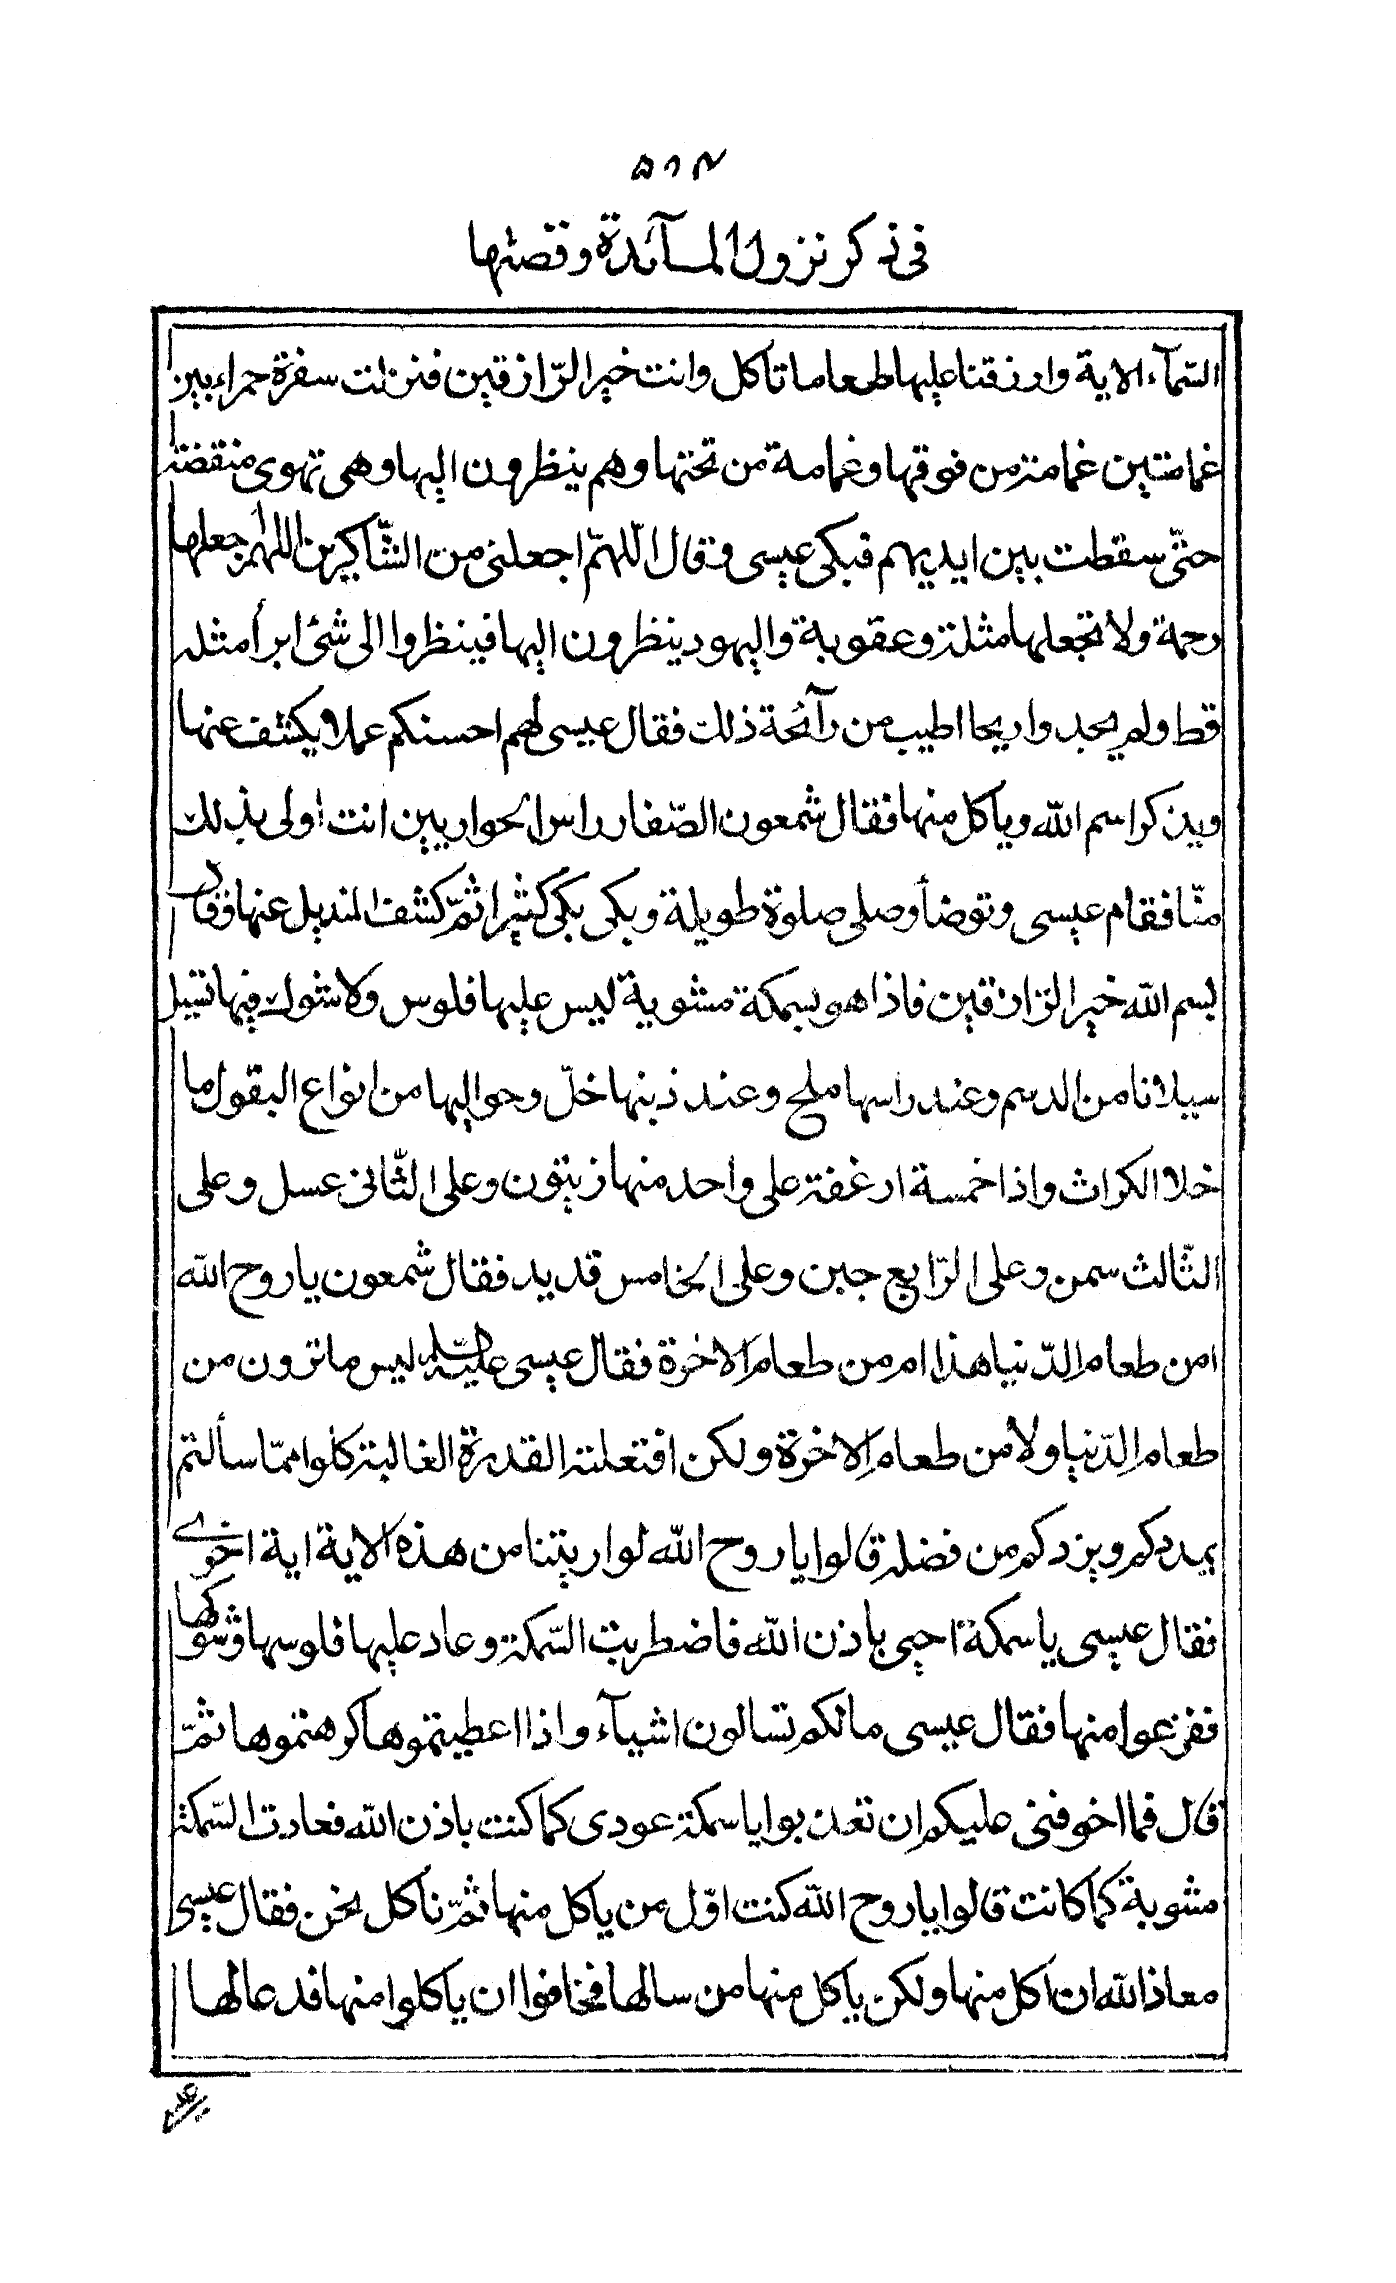 ۵۸۴
فی ذكر نزول المآئدة وقصتها
السّمآء الاية وارزقنا عليها طعاما تاكل وانت خير الرّازقين فنزلت سفرة حمراء بين
غمامتين غمامة من فوقها وغمامة من تحتها وهم ينظرون اليها وهی تهوی منقضة
حتّی سقطت بين ايديهم فبكی عيسی وقال اللّهمّ اجعلنی من الشّاكرين اللهم اجعلها
رحمة ولا تجعلها مثلة وعقوبة واليهود ينظرون اليها فينظروا الی شئ ابرأ مثله
قط ولم يجدوا ريحا اطيب من رآئحة ذلك فقال عيسی لهم احسنكم عملا يكشف عنها
ويذكر اسم الله وياكل منها فقال شمعون الصّفار راس الحواريين انت اولی بذلك
منّا فقام عيسی وتوضأ وصلی صلوة طويلة وبكی بكی كثيرا ثمّ كشف المنديل عنها وقال
بسم الله خير الرّازقين فاذا هو بسمكة مشوية ليس عليها فلوس ولا شوك فيها تسيل
سيلانا من الدسم وعند راسها ملح وعند ذنبها خلّ وحواليها من انواع البقول ما
خلا الكراث واذا خمسة ارغفة علی واحد منها زيتون وعلی الثّانی عسل وعلی
الثّالث سمن وعلی الرّابع جبن وعلی الخامس قديد فقال شمعون يا روح الله
امن طعام الدّنيا هذا ام من طعام الاخرة فقال عيسی عليه السّلم ليس ما ترون من
طعام الدّنيا ولا من طعام الاخرة ولكن افتعلته القدرة الغالبة كلوا ممّا سألتم
يمددكم ويزدكم من فضله قالوا يا روح الله لو اريتنا من هذه الاية اية اخری
فقال عيسی يا سمكة احيی باذن الله فاضطربت السّمكة وعاد عليها فلوسها وشوكها
ففزعوا منها فقال عيسی ما لكم تسالون اشيآء واذا اعطيتموها كرهتموها ثمّ
قال فما اخوفنی عليكم ان تعذبوا يا سمكة عودی كما كنت باذن الله فعادت السّمكة
مشوية كما كانت قالوا يا روح الله كنت اوّل من ياكل منها ثمّ ناكل نحن فقال عيسی
معاذ الله ان اكل منها ولكن ياكل منها من سالها فخافوا ان ياكلوا منها فدعا لها